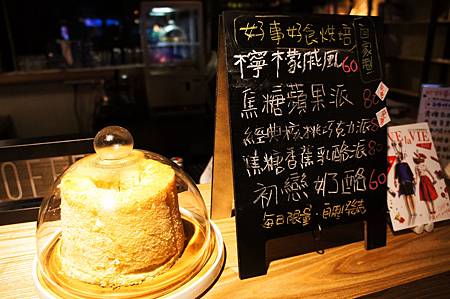 好事好食烘培
自家製
檸檬戚風 60
焦糖蘋果派 80
經典核桃巧克力派 80
焦糖香蕉乳酪派 80
初戀奶酪 60
每日限量
OFFE
VIE